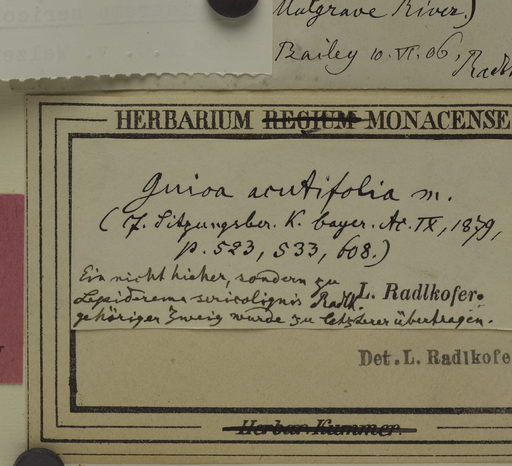 Mulgrave River.)
Bailey 10. VI. 06, Radl
HERBARIUM REGIUM MONACENSE
Guioa acutifolia m.
(f. Sitzungsber. K. bayer. Ac. IX, 1879,
p. 523, 533, 608.)
Ein nicht hieher, sondern zu
Lepiderema sericolignis Radlk.
gehöriger Zweig wurde zu letzterer übertragen.
L. Radlkofer.
Det. L. Radlkofe
Herbar. Kummer.